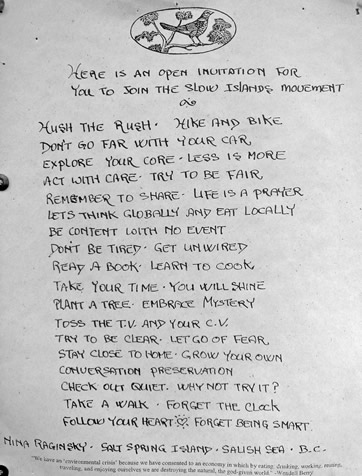 HERE IS AN OPEN INVITATION FOR
YOU TO JOIN THE SLOW ISLANDS MOVEMENT
HUSH THE RUSH · HIKE AND BIKE
DON'T GO FAR WITH YOUR CAR
EXPLORE YOUR CORE · LESS IS MORE
ACT WITH CARE · TRY TO BE FAIR
REMEMBER TO SHARE · LIFE IS A PRAYER
LETS THINK GLOBALLY AND EAT LOCALLY
BE CONTENT WITH NO EVENT
DON'T BE TIRED · GET UNWIRED
READ A BOOK · LEARN TO COOK
TAKE YOUR TIME · YOU WILL SHINE
PLANT A TREE · EMBRACE MYSTERY
TOSS THE T.V. AND YOUR C.V.
TRY TO BE CLEAR · LET GO OF FEAR
STAY CLOSE TO HOME · GROW YOUR OWN
CONVERSATION PRESERVATION
CHECK OUT QUIET. WHY NOT TRY IT?
TAKE A WALK · FORGET THE CLOCK
FOLLOW YOUR HEART FORGET BEING SMART.
NINA RAGINSKY · SALT SPRING ISLAND · SALISH SEA · B.C.
"We have an 'environmental crisis' because we have consented to an economy in which by eating, drinking, working, resting,
traveling, and enjoying ourselves we are destroying the natural, the god-given world." -Wendell Berry